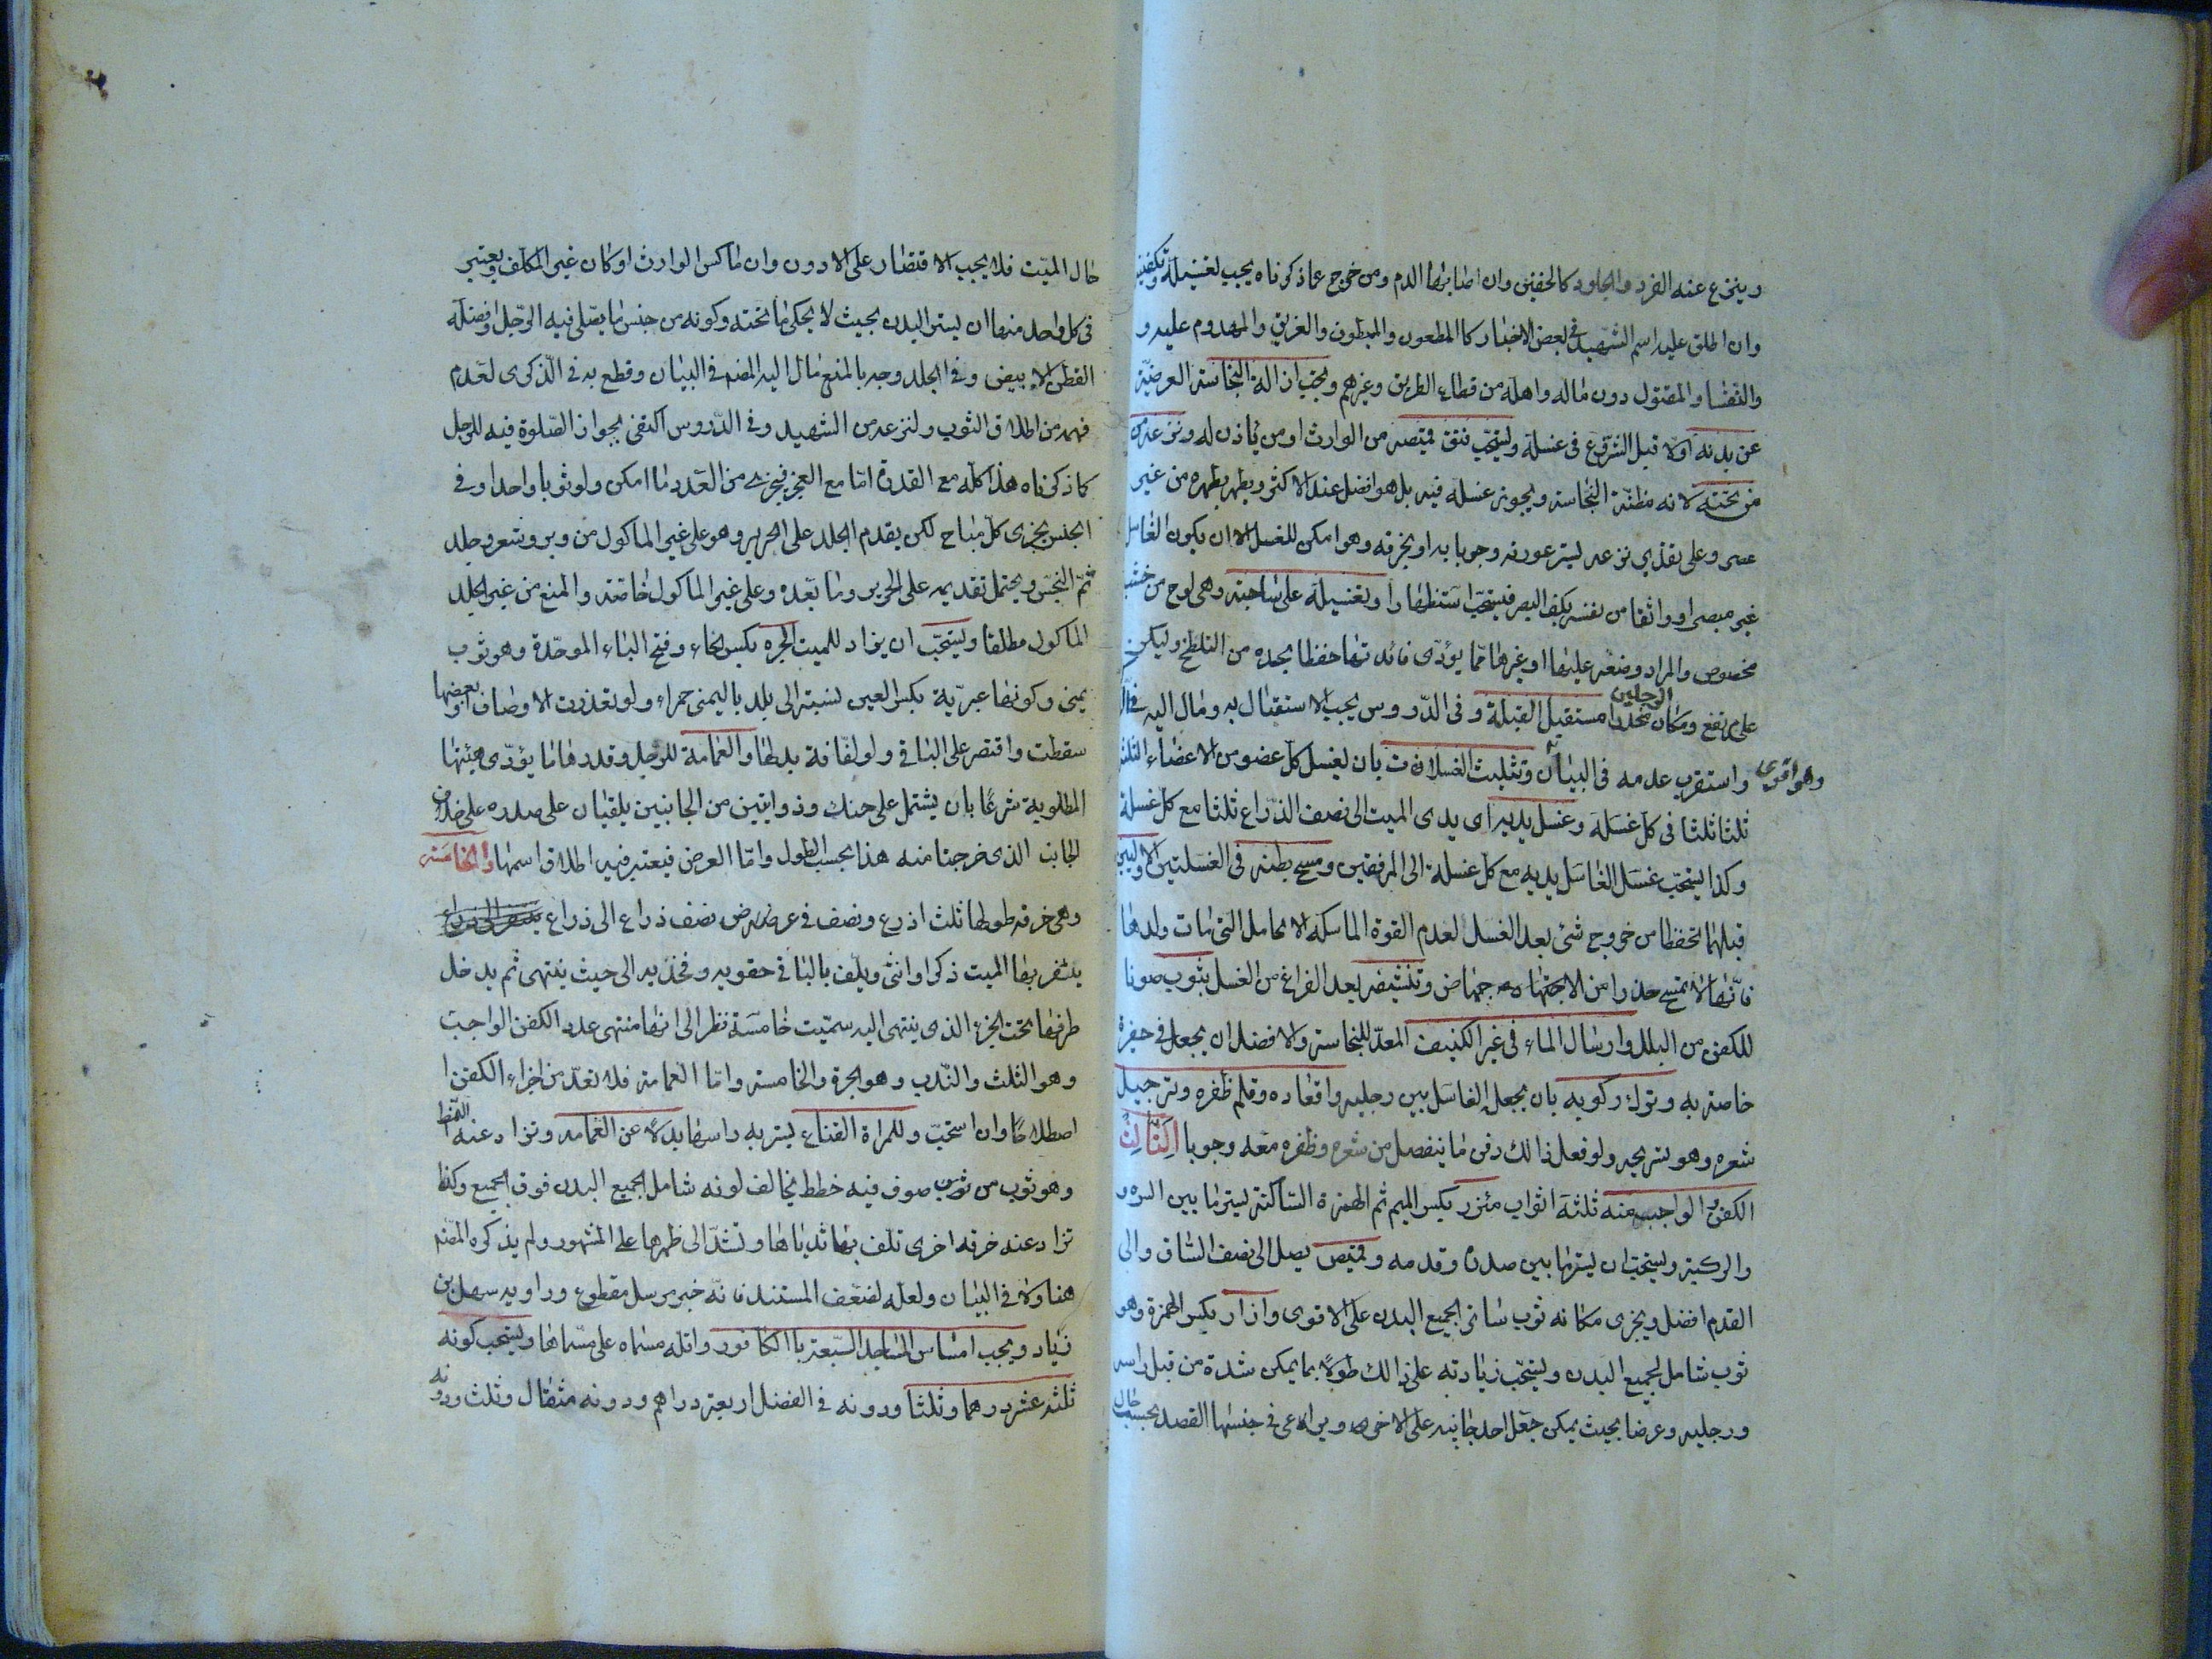 وينزع عنه الفرد والجلود كالخفين وان اصابهما الدم ومن خرج عما ذكرناه يجب تغسيله وتكفينه
وان اطلق عليه اسم الشهيد في بعض الاخبار كالمطعون والمبطون والغريق والمهدوم عليه و
والنفسا والمقتول دون ماله واهله من قطاع الطريق وغيرهم ويجب ازالة النجاسة العرضية
عن بدنه اولا قبل الشروع في غسله ويستحب فتق قميصه من الوارث او من ياذن له ونزعه من
من تحته لانه مظنة النجاسة ويجوز غسله فيه بل هو افضل عند الاكثر ويطهر بطهره من غير
عصر وعلى تقدير نزعه يستر عورته وجوبا به او بخرقه وهو امكن للغسل الا ان يكون الغاسل
غير مبصر او واثقا من نفسه بكف البصر فيستحب استظهارا وتغسيله على ساجة وهى لوح من خشب
مخصوص والمراد وضعه عليها او غيرها مما يؤدى فائدتها حفظا لجسده من التلطخ وليكن
على مرتفع ومكان الرجلين منحدرا مستقبل القبلة وفى الدروس يجب الاستقبال به ومال اليه في الذ
واستقرب عدمه فى البيان وتثليث الغسلات بان يغسل كل عضو من الاعضاء الثلثة
وهو اقوى
ثلثا ثلثا فى كل غسلة وغسل يديه اى يدى الميت الى نصف الذراع ثلثا مع كل غسلة
وكذا يستحب غسل الغاسل يديه مع كل غسلة الى المرفقين ومسح بطنه فى الغسلتين الاوليين
قبلهما تحفظا من خروج شئ بعد الغسل لعدم القوة الماسكه الا الحامل التى مات ولدها
فانها لا تمسح حذرا من الاجهاض وتنشيفه بعد الفراغ من الغسل بثوب صونا
للكفن من البلل وارسال الماء فى غير الكنيف المعد للنجاسة والافضل ان يجعل فى حفرة
خاصة به وترك ركوبه بان يجعل الغاسل بين رجليه واقعاده وقلم ظفره وترجيل
شعره وهو تسريحه ولو فعل ذالك دفن ما ينفصل من شعره وظفره معه وجوبا الثالث
الكفن والواجب منه ثلثة اثواب مئزر بكسر الميم ثم الهمزة الساكنة يستر ما بين السره و
والركبة ويستحب ان يستر ما بين صدره وقدمه وقميص يصل الى نصف الساق والى
القدم افضل ويجزى مكانه ثوب ساتر لجميع البدن على الاقوى وازار بكسر الهمزة وهو
ثوب شامل لجميع البدن ويستحب زيادته على ذالك طولا بما يمكن شده من قبل راسه
ورجليه وعرضا بحيث يمكن جعل احد جانبيه على الاخر ويراعى فى جنسها القصد بحسب حال
حال الميت فلا يجب الاقتصار على الادون وان ماكس الوارث او كان غير المكلف ويعتبر
فى كل واحد منها ان يستر البدن بحيث لا يحكى ما تحته وكونه من جنس ما يصلى فيه الرجل وافضله
القطن الابيض وفى الجلد وجه بالمنع مال اليه المصنف فى البيان وقطع به فى الذكرى لعدم
فهمه من اطلاق الثوب ولنزعه من الشهيد وفى الدروس اكتفى بجواز الصلوة فيه للرجل
كما ذكرناه هذا كله مع القدرة اما مع العجز فيجزى من العدد ما امكن ولو ثوبا واحدا وفى
الجنس يجزى كل مباح لكن يقدم الجلد على الحرير وهو على غير الماكول من وبر وشعر وجلد
ثم النجس ويحتمل تقديمه على الحرير وما بعده وعلى غير الماكول خاصة والمنع من غير الجلد
الماكول مطلقا ويستحب ان يزاد للميت الحبره بكسر الحاء وفتح الباء الموحدة وهو ثوب
يمنى وكونها عبرية بكسر العين نسبة الى بلد باليمن حمراء ولو تعذرت الاوصاف او بعضها
سقطت واقتصر على الباقى ولو لفافة بدلها والعمامة للرجل وقدرها ما يؤدى هيئتها
المطلوبة شرعا بان يشتمل على حنك وذوابتين من الجانبين يلقيان على صدره على خلاف
الجانب الذى خرجتا منه هذا بحسب الطول واما العرض فيعتبر فيه اطلاق اسمها والخامسة
وهى خرقه طولها ثلث اذرع ونصف فى عرض نصف ذراع الى ذراع
يثفر بها الميت ذكرا او انثى ويلف بالباقى حقويه وفخذيه الى حيث ينتهى ثم يدخل
طرفها تحت الجزء الذى ينتهى اليه سميت خامسة نظرا الى انها منتهى عدد الكفن الواجب
وهو الثلث والندب وهو الحبرة والخامسة واما العمامة فلا تعد من اجزاء الكفن ا
اصطلاحا وان استحب وللمراة القناع يستر به راسها بدلا عن العمامه وتزاد عنه النمط
وهو ثوب من صوف فيه خطط تخالف لونه شامل لجميع البدن فوق الجميع وكذا
تزاد عنه خرقه اخرى تلف بها ثدياها وتشد الى ظهرها على المشهور ولم يذكره المصنف
هنا ولا فى البيان ولعله لضعف المستند فانه خبر مرسل مقطوع وراويه سهل بن
زياد ويجب امساس المساجد السبعة بالكافور واقله مسماه على مسماها ويستحب كونه
ثلثة عشر درهما وثلثا ودونه فى الفضل اربعة دراهم ودونه مثقال وثلث ودونه